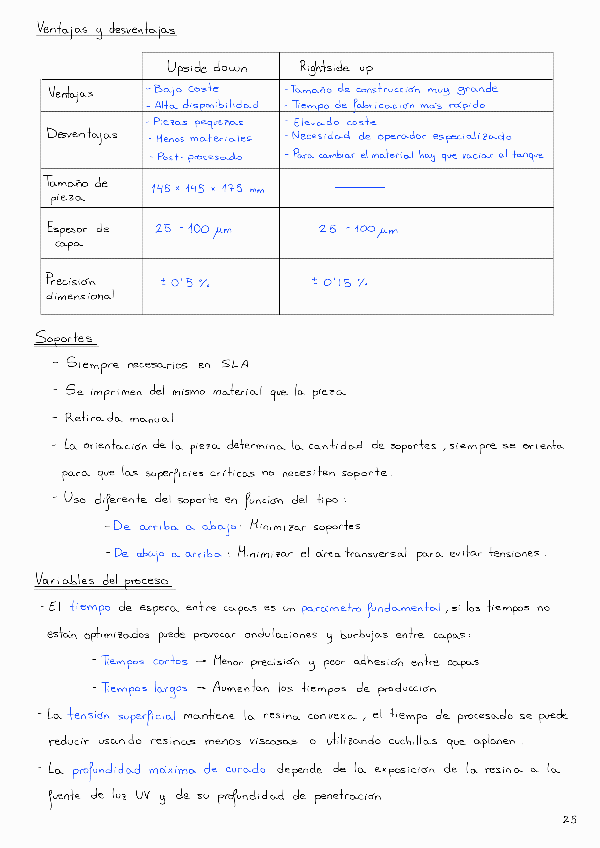 Ventajas y desventajas
Upside down Rightside up
Ventajas
- Bajo coste
- Alta disponibilidad
- Tamaño de construcción muy grande
- Tiempo de fabricación más rápido
Desventajas
- Piezas pequeñas
- Menos materiales
- Post-procesado
- Elevado coste
- Necesidad de operador especializado
- Para cambiar el material hay que vaciar al tanque
Tamaño de
pieza
145 x 145 x 175 mm
Espesor de
capa
25 - 100 μm
25 - 100 μm
Precisión
dimensional
± 0'5 %
± 0'15 %
Soportes
- Siempre necesarios en SLA
- Se imprimen del mismo material que la pieza
- Retirada manual
- La orientación de la pieza determina la cantidad de soportes, siempre se orienta
para que las superficies críticas no necesiten soporte.
- Uso diferente del soporte en función del tipo:
- De arriba a abajo: Minimizar soportes
- De abajo a arriba: Minimizar el área transversal para evitar tensiones.
Variables del proceso
- El tiempo de espera entre capas es un parámetro fundamental, si los tiempos no
están optimizados puede provocar ondulaciones y burbujas entre capas:
- Tiempos cortos → Menor precisión y peor adhesión entre capas
- Tiempos largos → Aumentan los tiempos de producción
- La tensión superficial mantiene la resina convexa, el tiempo de procesado se puede
reducir usando resinas menos viscosas o utilizando cuchillas que aplanen.
- La profundidad máxima de curado depende de la exposición de la resina a la
fuente de luz UV y de su profundidad de penetración
25